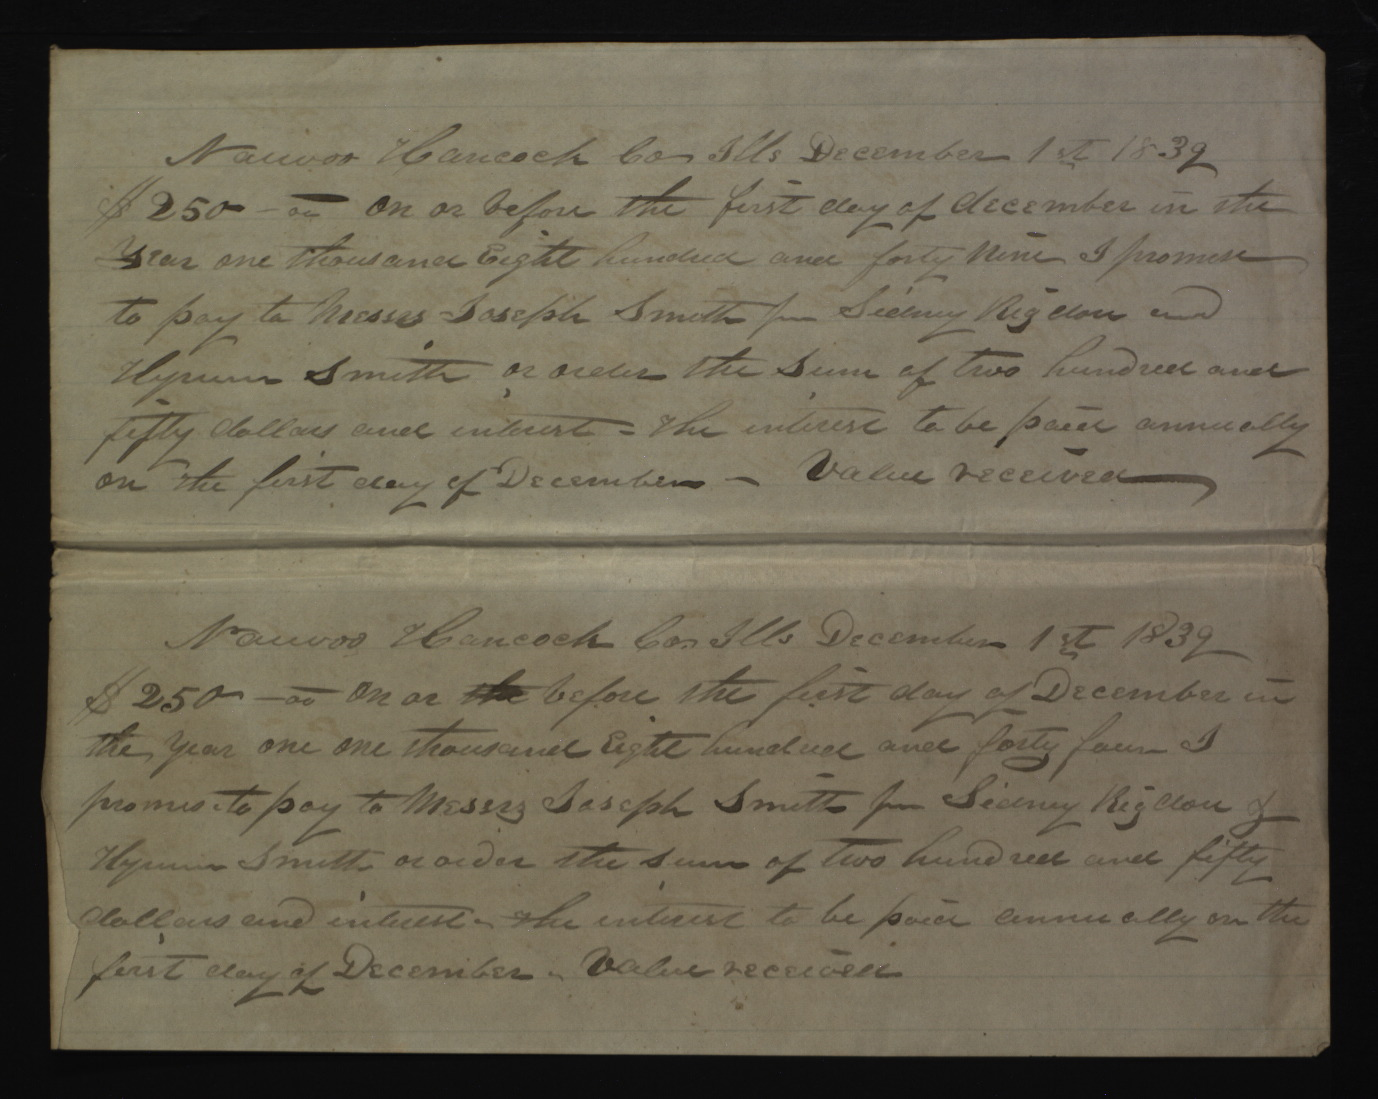 Nauvoo Hancock Co Ills December 1st 1839
$250 – 00 On or before the first day of december in the
Year one thousand Eight hundred and forty Nine I promise
to pay to Messrs Joseph Smith jun Sidney Rigdon and
Hyrum Smith or order the Sum of two hundred and
fifty dollars and interest = The interest to be paid annually
on the first day of December – Value received
Nauvoo Hancock Co. Ills December 1st 1839
$250 – 00 On or the before the first day of December in
the Year one one thousand Eight hundred and forty four I
promis to pay to Messrs Joseph Smith jun Sidney Rigdon &
Hyrum Smith or order the sum of two hundred and fifty
dollars and interest – The interest to be paid annually on the
first day of December – Value received